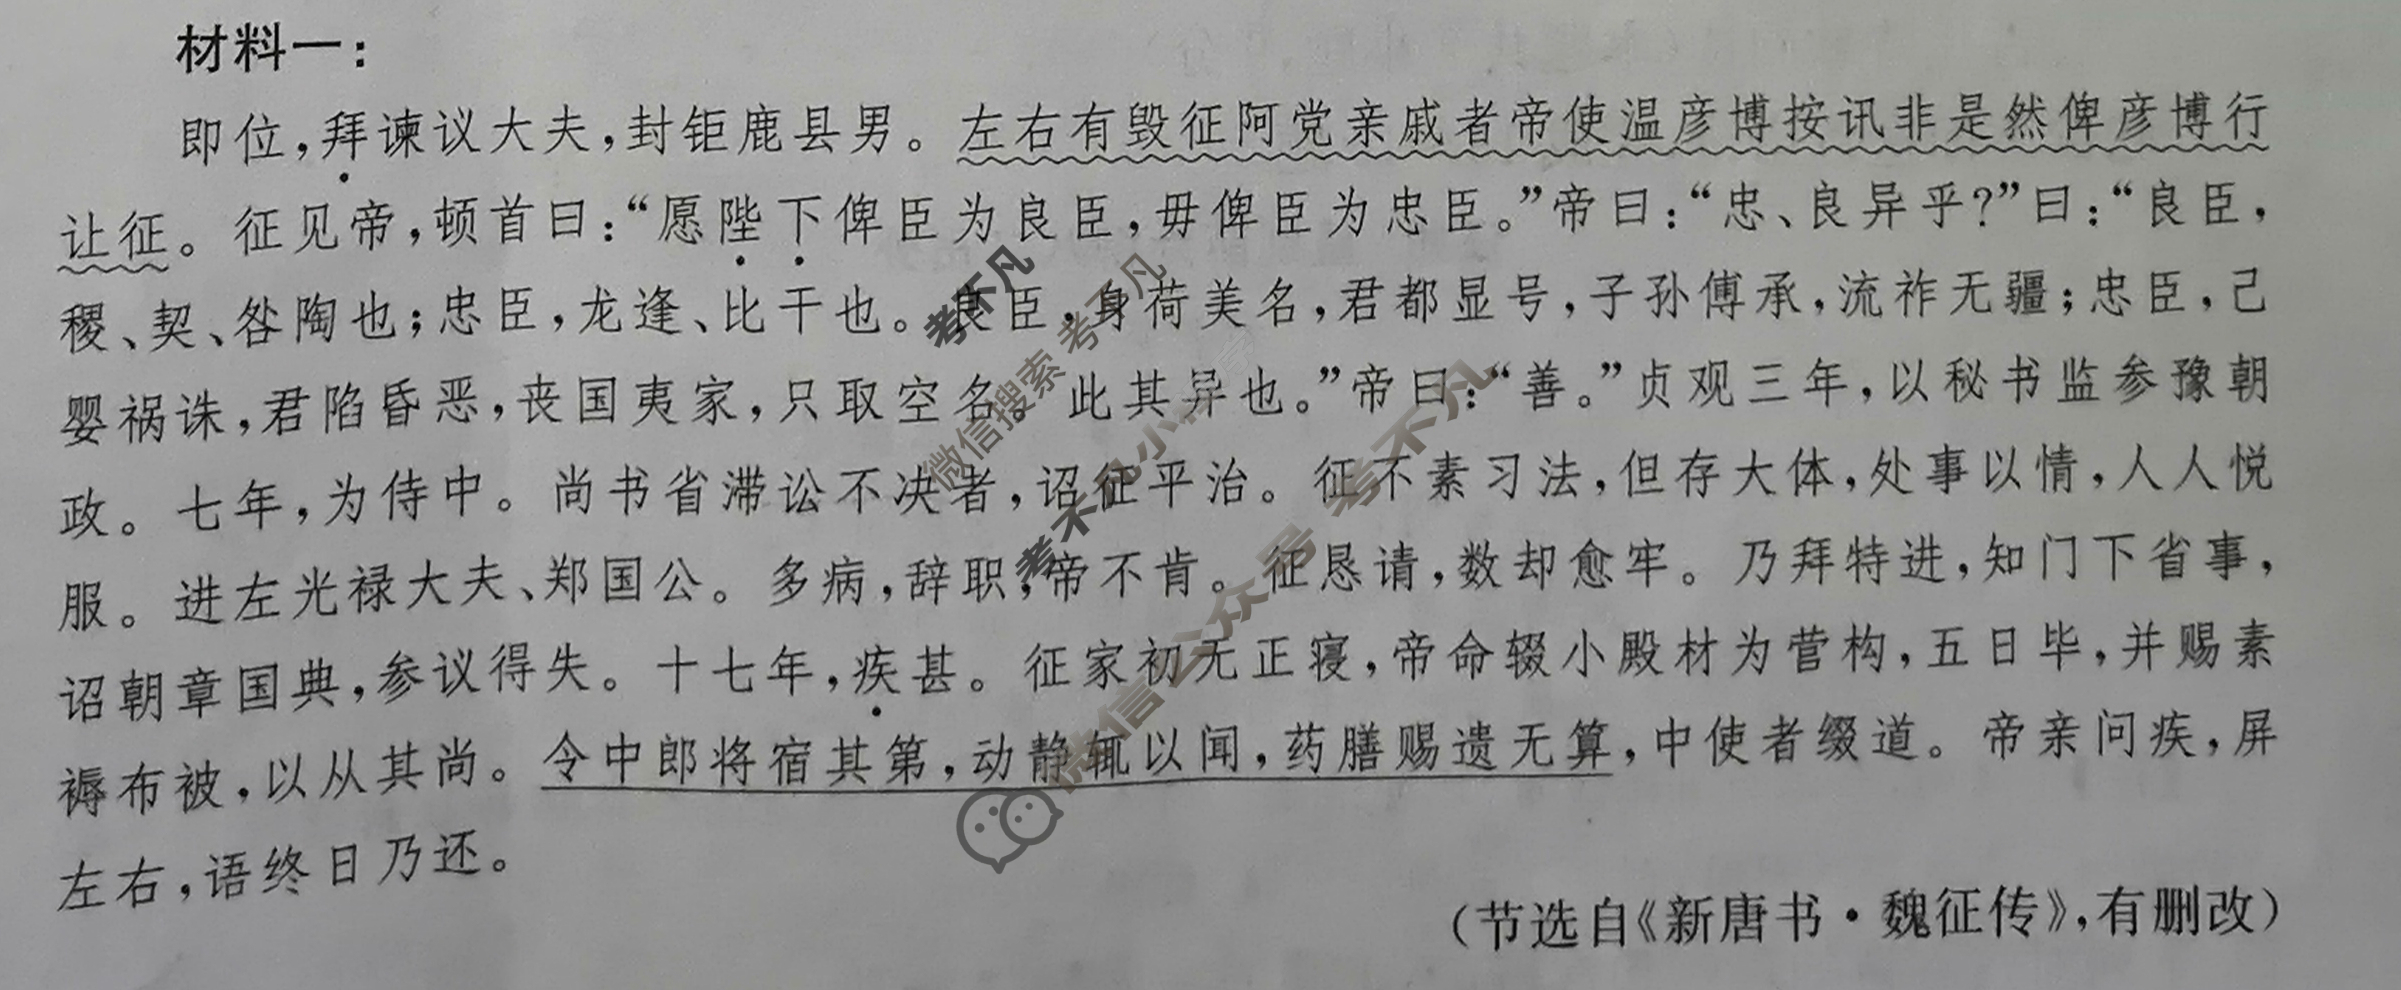 材料一：
即位，拜谏议大夫，封钜鹿县男。左右有毁征阿党亲戚者帝使温彦博按讯非是然俾彦博行
让征。征见帝，顿首曰：“愿陛下俾臣为良臣，毋俾臣为忠臣。”帝曰：“忠、良异乎？”曰：“良臣，
稷、契、咎陶也；忠臣，龙逢、比干也。良臣，身荷美名，君都显号，子孙傅承，流祚无疆；忠臣，己
婴祸诛，君陷昏恶，丧国夷家，只取空名。此其异也。”帝曰：“善。”贞观三年，以秘书监参豫朝
政。七年，为侍中。尚书省滞讼不决者，诏征平治。征不素习法，但存大体，处事以情，人人悦
服。进左光禄大夫、郑国公。多病，辞职，帝不肯。征恳请，数却愈牢。乃拜特进，知门下省事，
诏朝章国典，参议得失。十七年，疾甚。征家初无正寝，帝命辍小殿材为营构，五日毕，并赐素
褥布被，以从其尚。令中郎将宿其第，动静辄以闻，药膳赐遗无算，中使者缀道。帝亲问疾，屏
左右，语终日乃还。
（节选自《新唐书·魏征传》，有删改）
考不凡
微信搜索 考不凡
考不凡小
微信公众号 考不凡